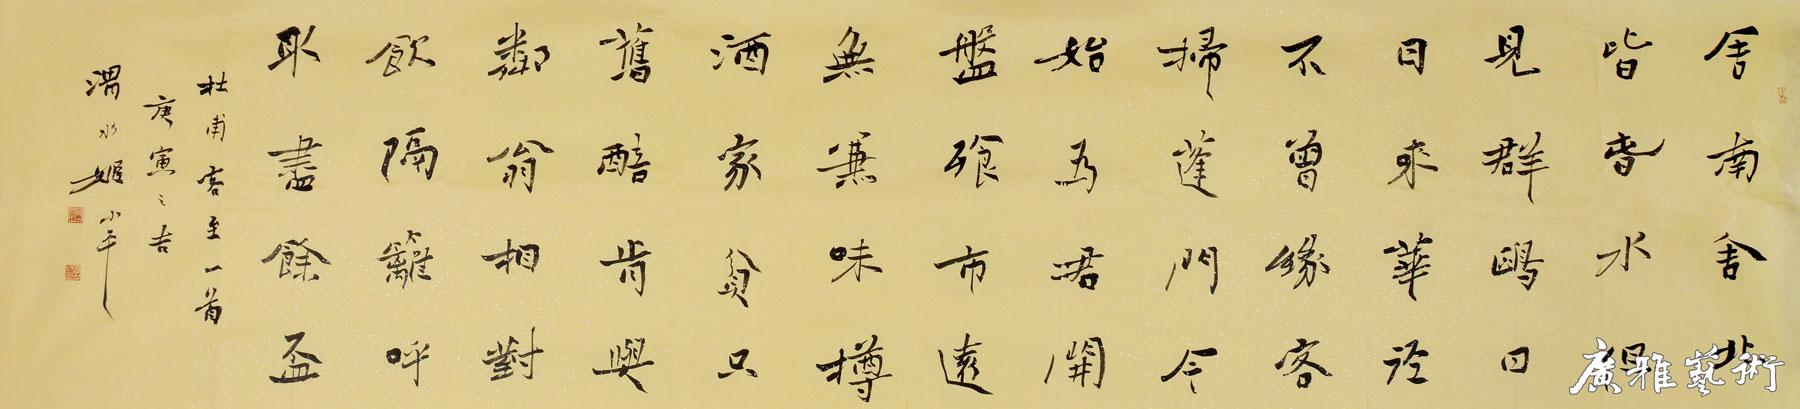 舍南舍北
皆春水但
見群鷗日
日來華徑
不曾緣客
掃蓬門今
始為君開
盤飧市遠
無兼味樽
酒家貧只
舊醅肯與
鄰翁相對
飲隔籬呼
取盡餘盃
杜甫客至一首
庚寅之吉
渭水姬小平
廣雅藝術